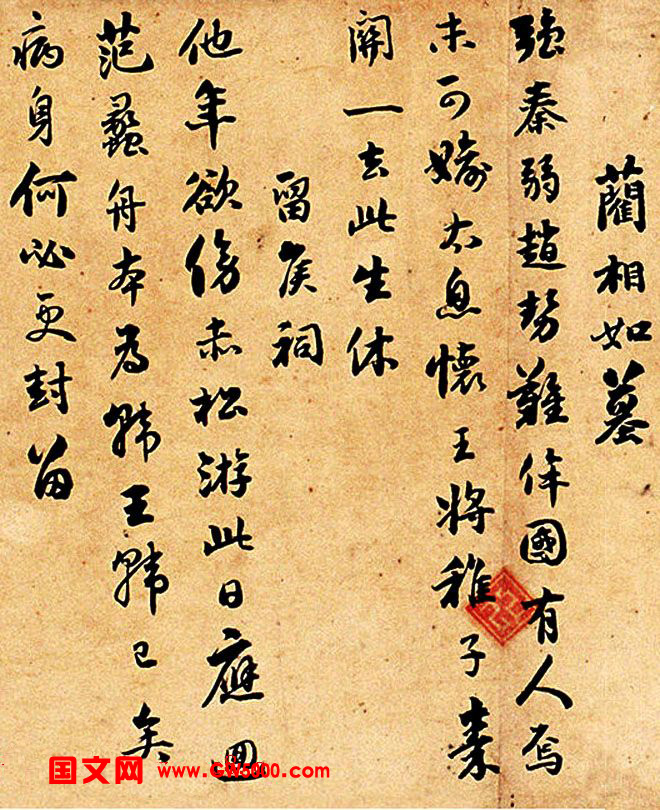 藺相如墓
强秦弱趙勢難侔國有人焉
未可婾太息懷王將稚子秦
關一去此生休
留侯祠
他年欲傍赤松游此日應回
范蠡舟本為韓王韓已矣
病身何必更封留
国文网 www.GW5000.com